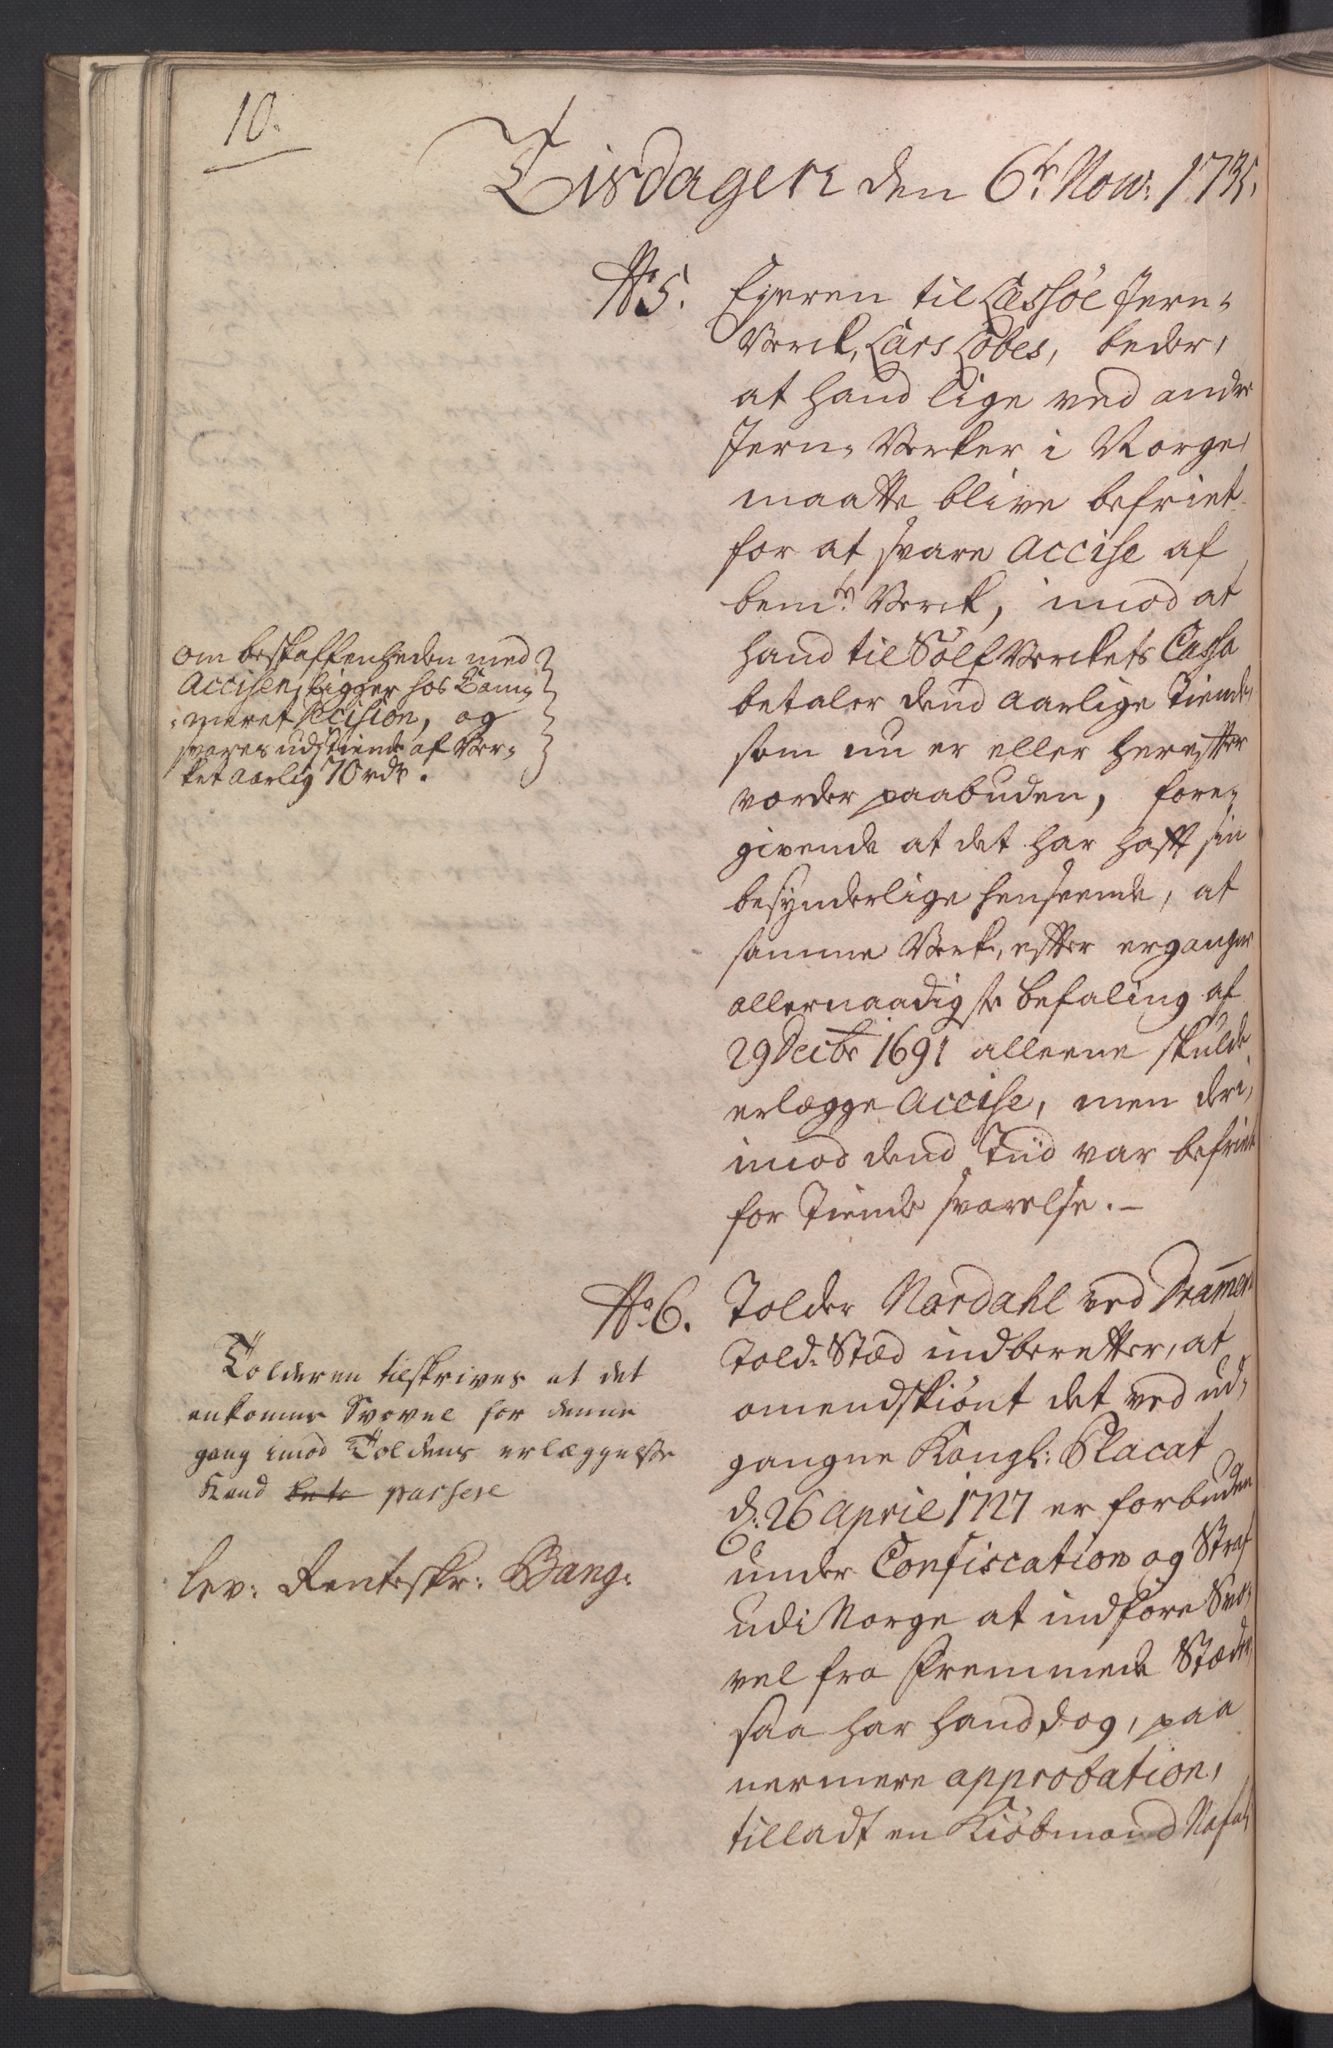 10.
Tisdagen den 6te Nov: 1731.
No 5.
Eyeren til Læssøe Jern-
Verck, Lars Lobes, beder,
at hand lige ved andre
Jern-Verker i Norge,
maatte blive befriet
for at svare Accise af
bemte Verck, imod at
hand til Sølf Verckets Cassa
betaler dend aarlige Tiende,
som nu er eller herefter
vorder paabuden, fore-
givende at det har hafft sin
besynderlige henseende, at
samme Verk, effter ergangne
allernaadigste befaling af
29 Decbr 1691 alleene skulde
erlægge Accise, men der i-
mod dend Tiid var befriet
for Tiende svarelse.-
om beskaffenheden med
Accisen, ligger hos Cam-
meret Decision, og
svares udj tiende af Ver-
ket aarlig 70 rdr.
No 6.
Tolder Nordahl ved Drammens
Told-Stæd indberetter, at
omendskiønt det ved ud-
gangne Kongl: Placat
d: 26 April 1727 er forbuden
under Confiscation og Straf
udi Norge at indføre Svo-
vel fra Fremmede Stæder,
saa har hand dog, paa
nermere approbation,
tilladt en Kiøbmand
Tolderen tilskrives at det
ankomne Svovel for denne
gang imod Toldens erlæggelse
Kand passere
lev: Renteskr: Bang.